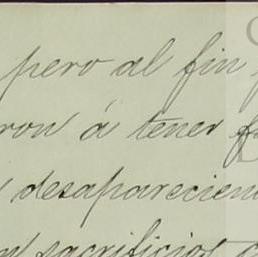 pero al fin
ron á tener
desaparecien
sacrificios